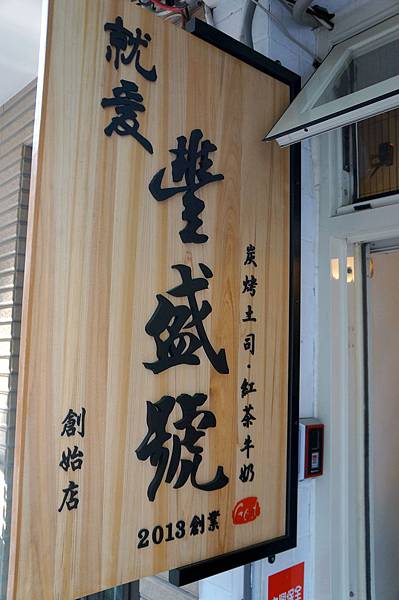 就愛
豐盛號
炭烤土司·紅茶牛奶
創始店
2013創業